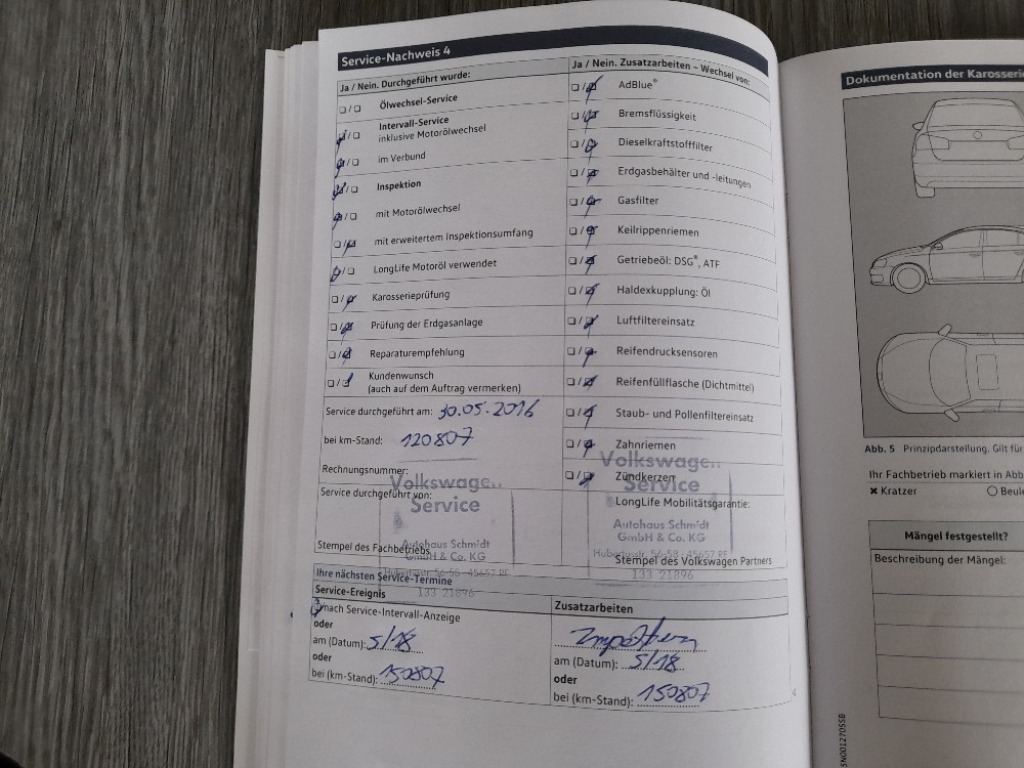 Service-Nachweis 4
Ja / Nein. Durchgeführt wurde:
Ölwechsel-Service
Intervall-Service
inklusive Motorölwechsel
im Verbund
Inspektion
mit Motorölwechsel
mit erweitertem Inspektionsumfang
LongLife Motoröl verwendet
Karosserieprüfung
Prüfung der Erdgasanlage
Reparaturempfehlung
Kundenwunsch
(auch auf dem Auftrag vermerken)
Service durchgeführt am: 30.05.2016
bei km-Stand: 120807
Rechnungsnummer:
Service durchgeführt von:
Volkswage..
Service
Autohaus Schmidt
GmbH & Co. KG
Hubertusstr. 56-58 - 45657 RE
133 21896
Stempel des Fachbetriebs
Ja / Nein. Zusatzarbeiten – Wechsel von:
AdBlue®
Bremsflüssigkeit
Dieselkraftstofffilter
Erdgasbehälter und -leitungen
Gasfilter
Keilrippenriemen
Getriebeöl: DSG®, ATF
Haldexkupplung: Öl
Luftfiltereinsatz
Reifendrucksensoren
Reifenfüllflasche (Dichtmittel)
Staub- und Pollenfiltereinsatz
Zahnriemen
Zündkerzen
LongLife Mobilitätsgarantie:
Volkswage..
Service
Autohaus Schmidt
GmbH & Co. KG
Hubertusstr. 56-58 - 45657 RE
133 21896
Stempel des Volkswagen Partners
Ihre nächsten Service-Termine
Service-Ereignis
nach Service-Intervall-Anzeige
oder
am (Datum): 5/18
oder
bei (km-Stand): 150807
Zusatzarbeiten
am (Datum): 5/18
oder
bei (km-Stand): 150807
4
Dokumentation der Karosserie
Abb. 5 Prinzipdarstellung. Gilt für
Ihr Fachbetrieb markiert in Abb
Kratzer
Beule
Mängel festgestellt?
Beschreibung der Mängel:
5N0012705SB